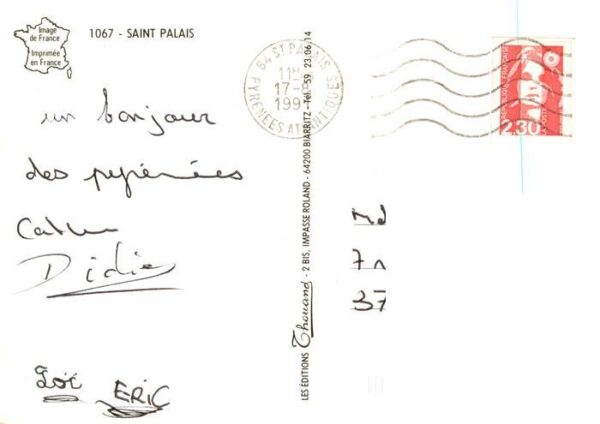 Image
de France
Imprimée
en France
1067 - SAINT PALAIS
64 ST PALAIS
11H
17-
199
PYRENEES ATLANTIQUES
REPUBLIQUE FRANÇAISE
2,30
un bonjour
des pyrénées
Didier
Loïc ERIC
Md
7
37
LES ÉDITIONS Thouand - 2 BIS, IMPASSE ROLAND - 64200 BIARRITZ - Tél. 59. 23.06.14